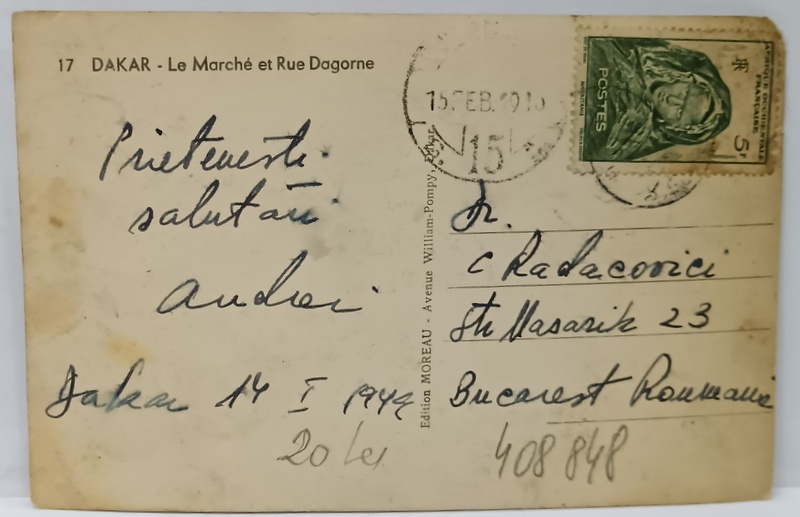 17 DAKAR - Le Marché et Rue Dagorne
15 FEB. 19
15
AFRIQUE OCCIDENTALE
FRANÇAISE
POSTES
RF
5F
Prietenești
salutări
Andrei
Dakar 14 I 1949
20 lei
Edition MOREAU - Avenue William-Pompy, Dakar
Dr.
C Radacovici
Str Masarik 23
Bucarest Roumanie
408 848